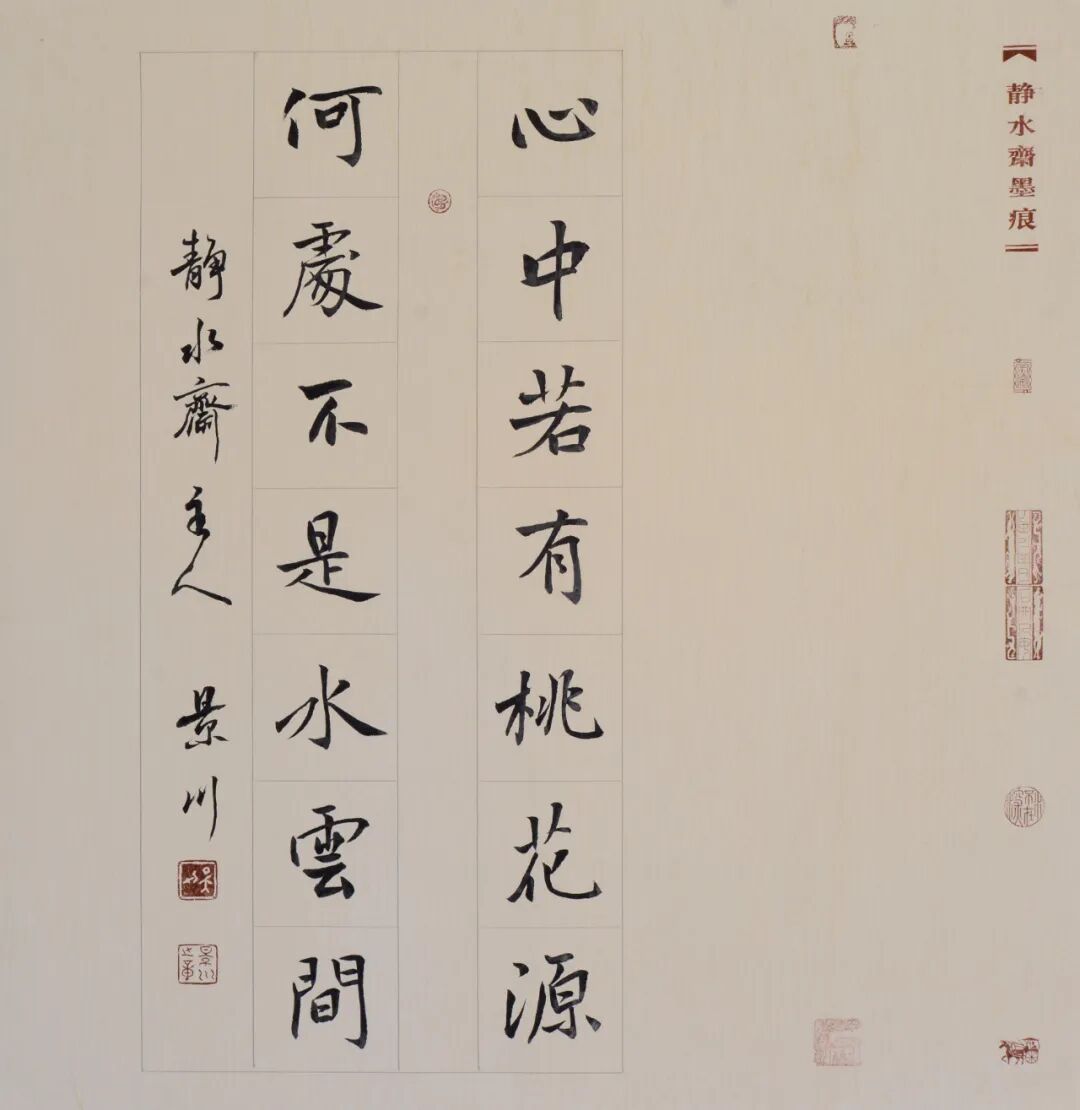 静水齋墨痕
心中若有桃花源
何處不是水雲間
静水齋主人 景川
景川之章